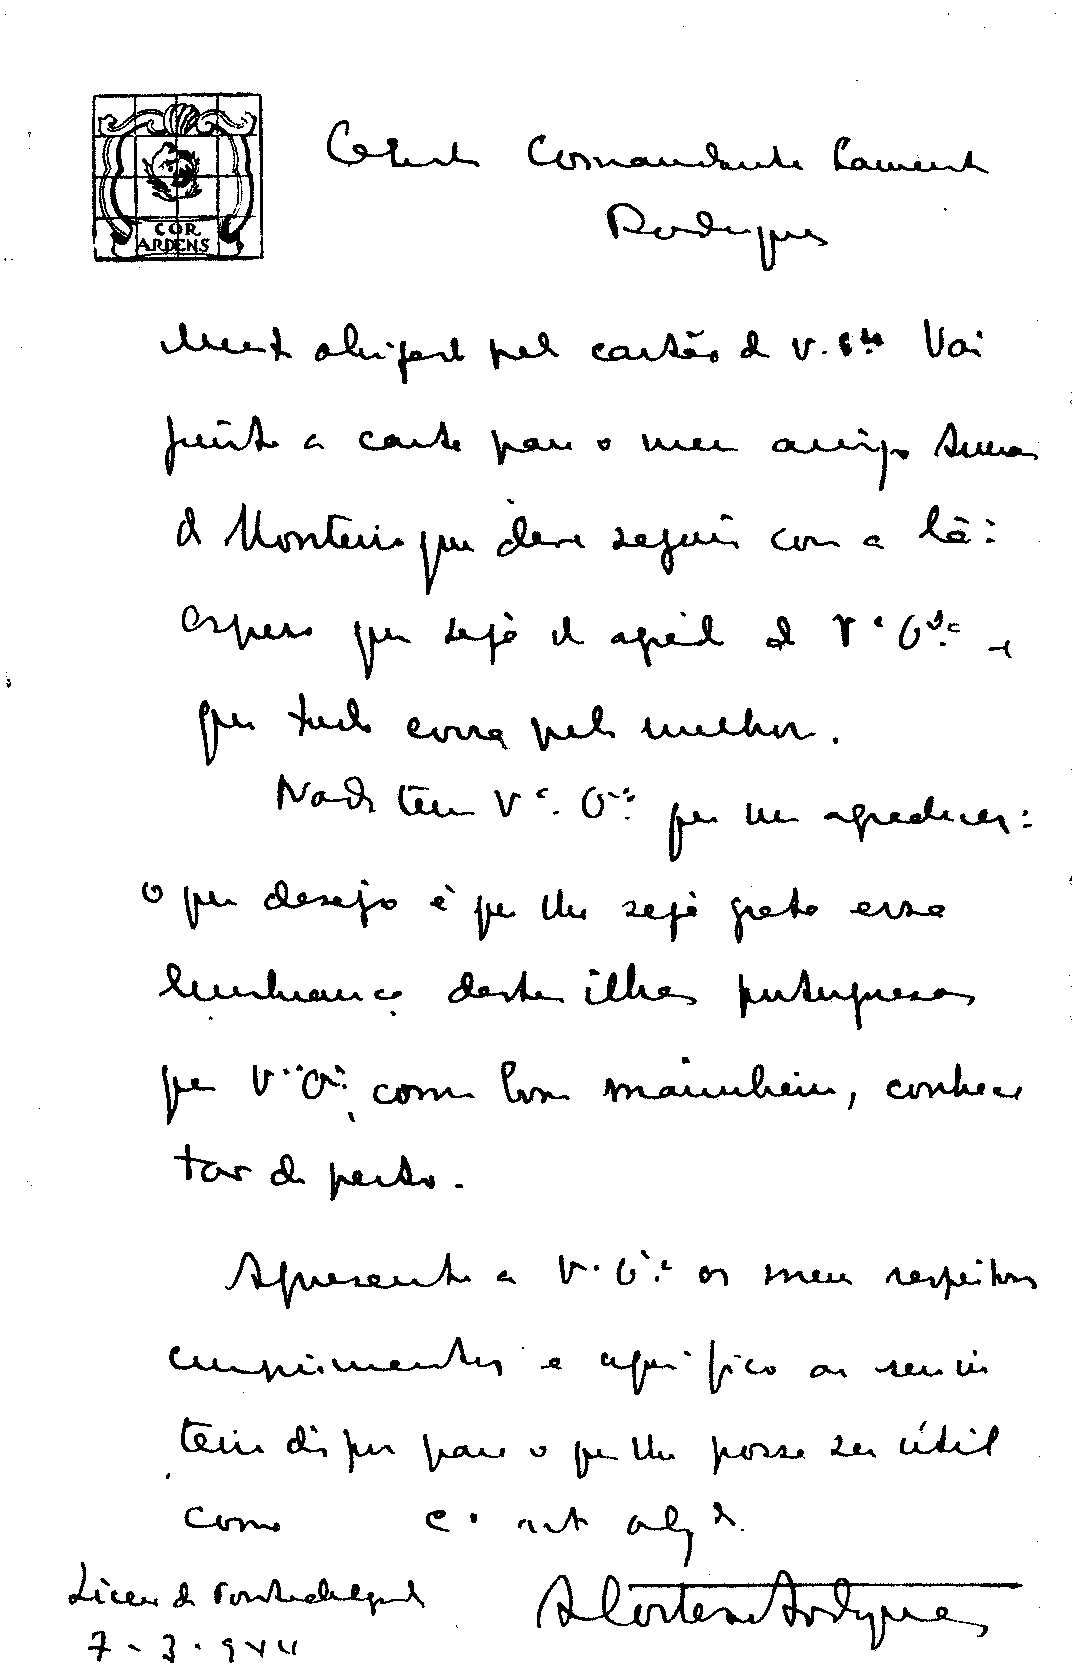 COR
ARDENS
Comandante Sarmento
Rodrigues
Muito obrigado pelo cartão de V. Vai
junto a carta para o meu amigo
de Monteiro que deve seguir com a lã:
espero que seja do agrado de V.ª Ex.ª e
que tudo corra pelo melhor.
Nada tem V.ª Ex.ª que me agradecer:
o que desejo é que lhe seja grata essa
lembrança destas ilhas portuguesas
que V.ª Ex.ª, como bom marinheiro, conhece
tão de perto.
Apresento a V. Ex.ª os meus respeitosos
cumprimentos e aqui fico ao seu
dispor para o que lhe possa ser útil
como
Liceu de Ponta Delgada
7-3-944
A Cortes-Rodrigues